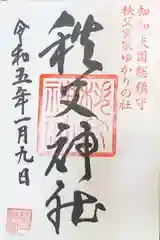 知知夫国総鎮守
秩父宮家ゆかりの社
秩父神社
令和五年一月九日